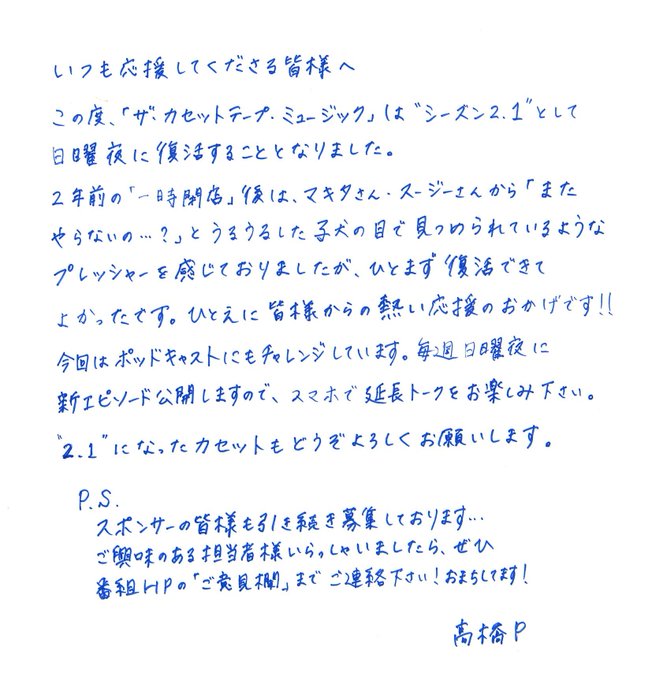 いつも応援してくださる皆様へ
この度、「ザ・カセットテープ・ミュージック」は"シーズン2.1"として
日曜夜に復活することとなりました。
2年前の「一時閉店」後は、マキタさん・スージーさんから「また
やらないの…?」とうるうるした子犬の目で見つめられているような
プレッシャーを感じておりましたが、ひとまず復活できて
よかったです。ひとえに皆様からの熱い応援のおかげです!!
今回はポッドキャストにもチャレンジしています。毎週日曜夜に
新エピソード公開しますので、スマホで延長トークをお楽しみ下さい。
"2.1"になったカセットもどうぞよろしくお願いします。
P.S.
スポンサーの皆様も引き続き募集しております…
ご興味のある担当者様いらっしゃいましたら、ぜひ
番組HPの「ご意見欄」までご連絡下さい!おまちしてます!
高橋P